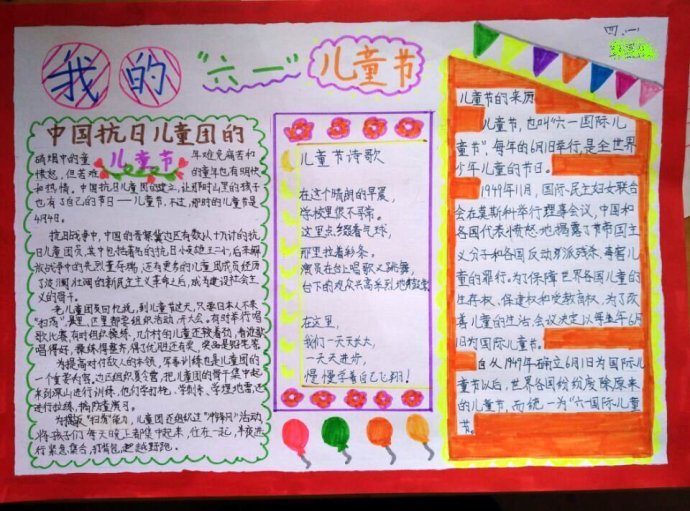 我的"六一"儿童节
四.一
中国抗日儿童团的
儿童节
硝烟中的童年难免痛苦和
愤怒,但苦难的童年也有明快
和热情。中国抗日儿童团的建立,让那时山里的孩子
也有了自己的节日——儿童节,不过,那时的儿童节是
4月4日。
抗日战争中,中国的晋察冀边区有数以十万计的抗
日儿童团员,其中包括著名的抗日小英雄王二小,后来解
放战争中的先烈董存瑞,还有更多的儿童团成员经历
了波澜壮阔的新民主主义革命之后,成为建设社会主
义的骨干。
老儿童团员回忆说,到儿童节这天,只要日本人不来
"扫荡",县里、区里都要组织活动,开大会。有时举行唱
歌比赛,有时组织操练,几个村的儿童还较着劲,看谁歌
唱得好,操练得整齐,得了优胜还有奖,奖品是铅笔等。
为提高对付敌人的本领,军事训练也是儿童团的
一个重要内容。边区组织夏令营,把儿童团的骨干集中起
来到深山进行训练,他们学打枪、学刺杀、学埋地雷,还
进行拉练,搞防空演习。
活动
将孩子们每天晚上都集中起来,住在一起,半夜进
行紧急集合,打背包,越野跑。
儿童节诗歌
在这个晴朗的早晨,
学校里很不寻常。
这里点缀着气球,
那里拉着彩条。
演员在台上唱歌又跳舞,
台下的观众兴高采烈地
在这里,
我们一天天长大,
一天天进步,
慢慢学着自己飞翔!
儿童节的来历
儿童节,也叫"六一国际儿
童节",每年的6月1日举行,是全世界
少年儿童的节日。
1949年11月,国际民主妇女联合
会在莫斯科举行理事会议,中国和
各国代表愤怒地揭露了帝国主
义分子和各国反动派残杀、毒害儿
童的罪行。为了保障世界各国儿童的
生存权、保健权和受教育权,为了改
善儿童的生活,会议决定以每年6月
1日为国际儿童节。
自从1949年确立6月1日为国际儿
童节以后,世界各国纷纷废除原来
的儿童节,而统一为"六一国际儿童
节。